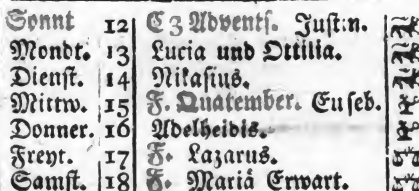 Sonnt 12 E 3 Adventſ. Juſt:n.
Mondt. 13 Lucia und Ottilia.
Dienſt. 14 Nikaſius.
Mittw. 15 F. Quatember. Euſeb.
Donner. 16 Adelheidis.
Freyt. 17 F. Lazarus.
Samſt. 18 F. Mariä Erwart.